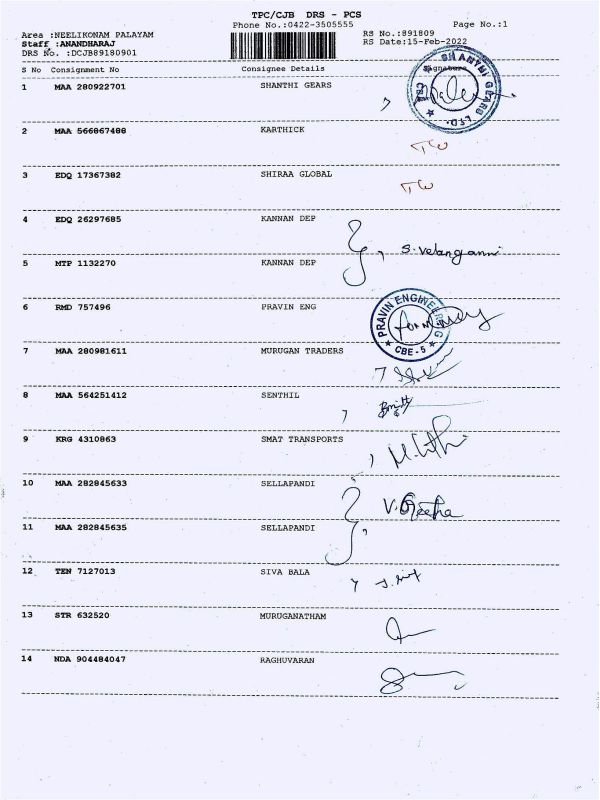 TPC/CJB DRS - PCS
Phone No.:0422-3505555 Page No.:1
Area :NEELIKONAM PALAYAM RS No.:891809
Staff :ANANDHARAJ RS Date:15-Feb-2022
DRS No. :DCJB89180901
S No Consignment No Consignee Details Signature
1 MAA 280922701 SHANTHI GEARS
SHANTHI GEARS LTD. CBE
2 MAA 566867488 KARTHICK
TW
3 EDQ 17367382 SHIRAA GLOBAL
TW
4 EDQ 26297685 KANNAN DEP
S. Velanganni
5 MTP 1132270 KANNAN DEP
6 RMD 757496 PRAVIN ENG
PRAVIN ENGINEERING CBE-5
7 MAA 280981611 MURUGAN TRADERS
8 MAA 564251412 SENTHIL
9 KRG 4310863 SMAT TRANSPORTS
10 MAA 282845633 SELLAPANDI
V. Geetha
11 MAA 282845635 SELLAPANDI
12 TEN 7127013 SIVA BALA
13 STR 632520 MURUGANATHAM
14 NDA 904484047 RAGHUVARAN